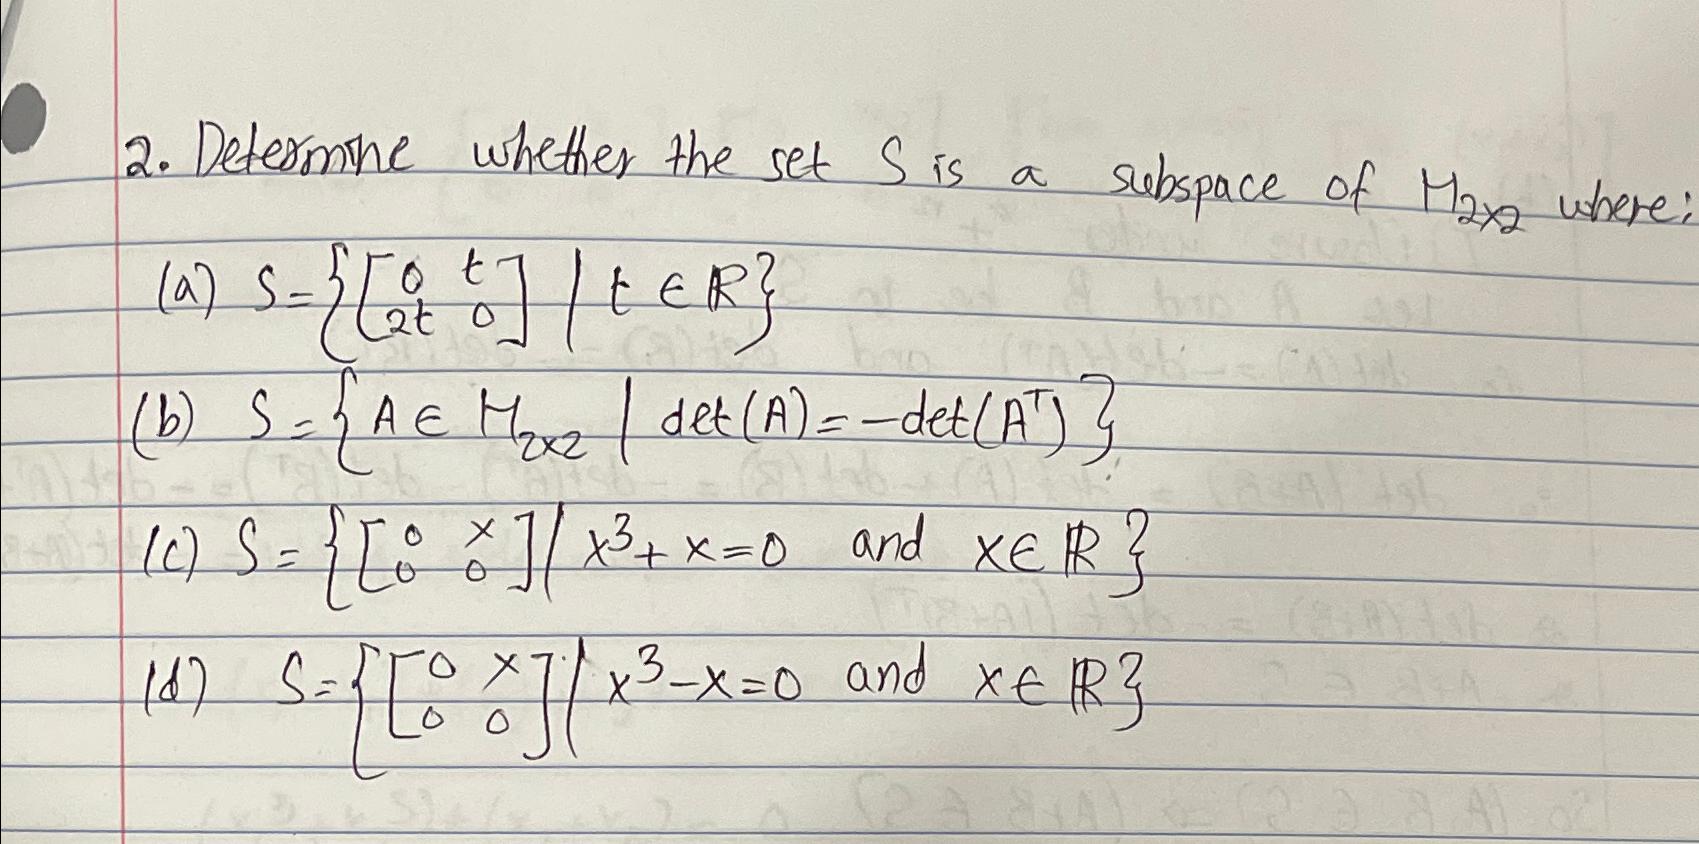 2. Determine whether the set S is a subspace of M₂ₓ₂ where:
(a) S = {[0 t; 2t 0] | t ∈ ℝ}
(b) S = {A ∈ M₂ₓ₂ | det(A) = -det(Aᵀ)}
(c) S = {[0 x; 0 0] | x³ + x = 0 and x ∈ ℝ}
(d) S = {[0 x; 0 0] | x³ - x = 0 and x ∈ ℝ}